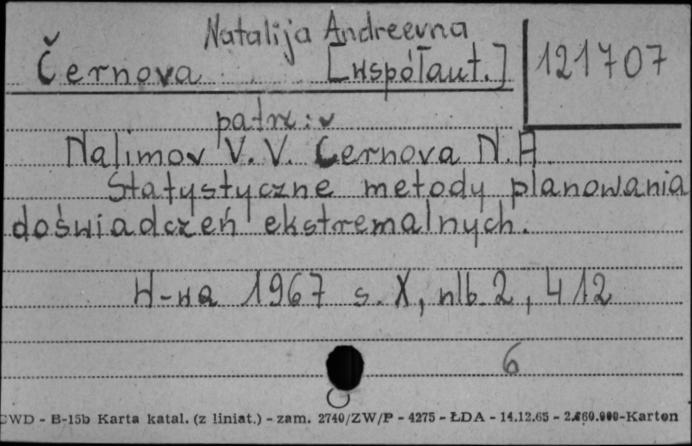 Natalija Andreevna
Černova [współaut.] 121707
patrz:
Nalimov V. V. Černova N. A
Statystyczne metody planowania
doświadczeń ekstremalnych.
W-wa 1967 s. X, nlb. 2, 412
6
CWD - B-15b Karta katal. (z liniat.) - zam. 2740/ZW/P - 4275 - ŁDA - 14.12.65 - 2.860.000-Karton